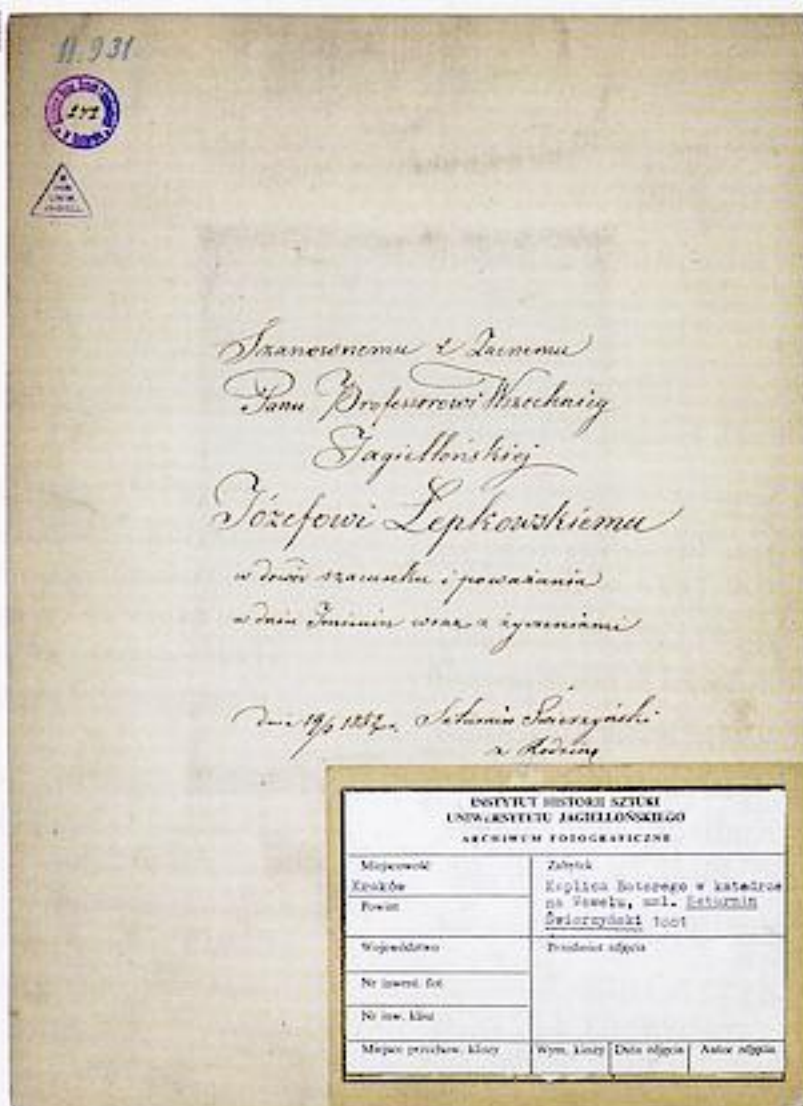 11.931
272
Szanownemu i Zacnemu
Panu Professorowi Wszechnicy
Jagiellońskiej
Józefowi Łepkowskiemu
w dowód szacunku i poważania
w dniu Imienin wraz z życzeniami
dnia 19/3 Saturnin Świerzyński
z Rodziną
INSTYTUT HISTORII SZTUKI
UNIWERSYTETU JAGIELLOŃSKIEGO
ARCHIWUM FOTOGRAFICZNE
Miejscowość
Kraków
Powiat
Województwo
Nr inwent. fot.
Nr inw. kliszy
Miejsce przechow. kliszy
Zabytek
Kaplica Batorego w katedrze
na Wawelu, mal. Saturnin
Świerzyński
Przedmiot zdjęcia
Wym. kliszy
Data zdjęcia
Autor zdjęcia